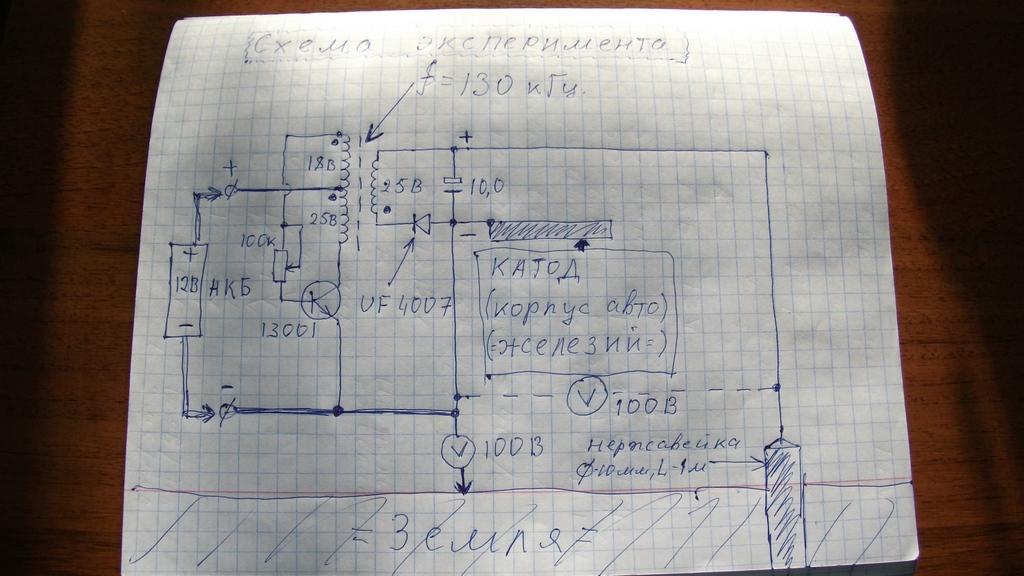 Схема эксперимента
f=130 кГц.
+
18В
+
25В
10,0
25В
-
100к
+
12В АКБ
-
UF4007
КАТОД
(корпус авто)
(=железий=)
13001
-
V 100В
V 100В
нержавейка
Ф-10мм, L-1м
= Земля =